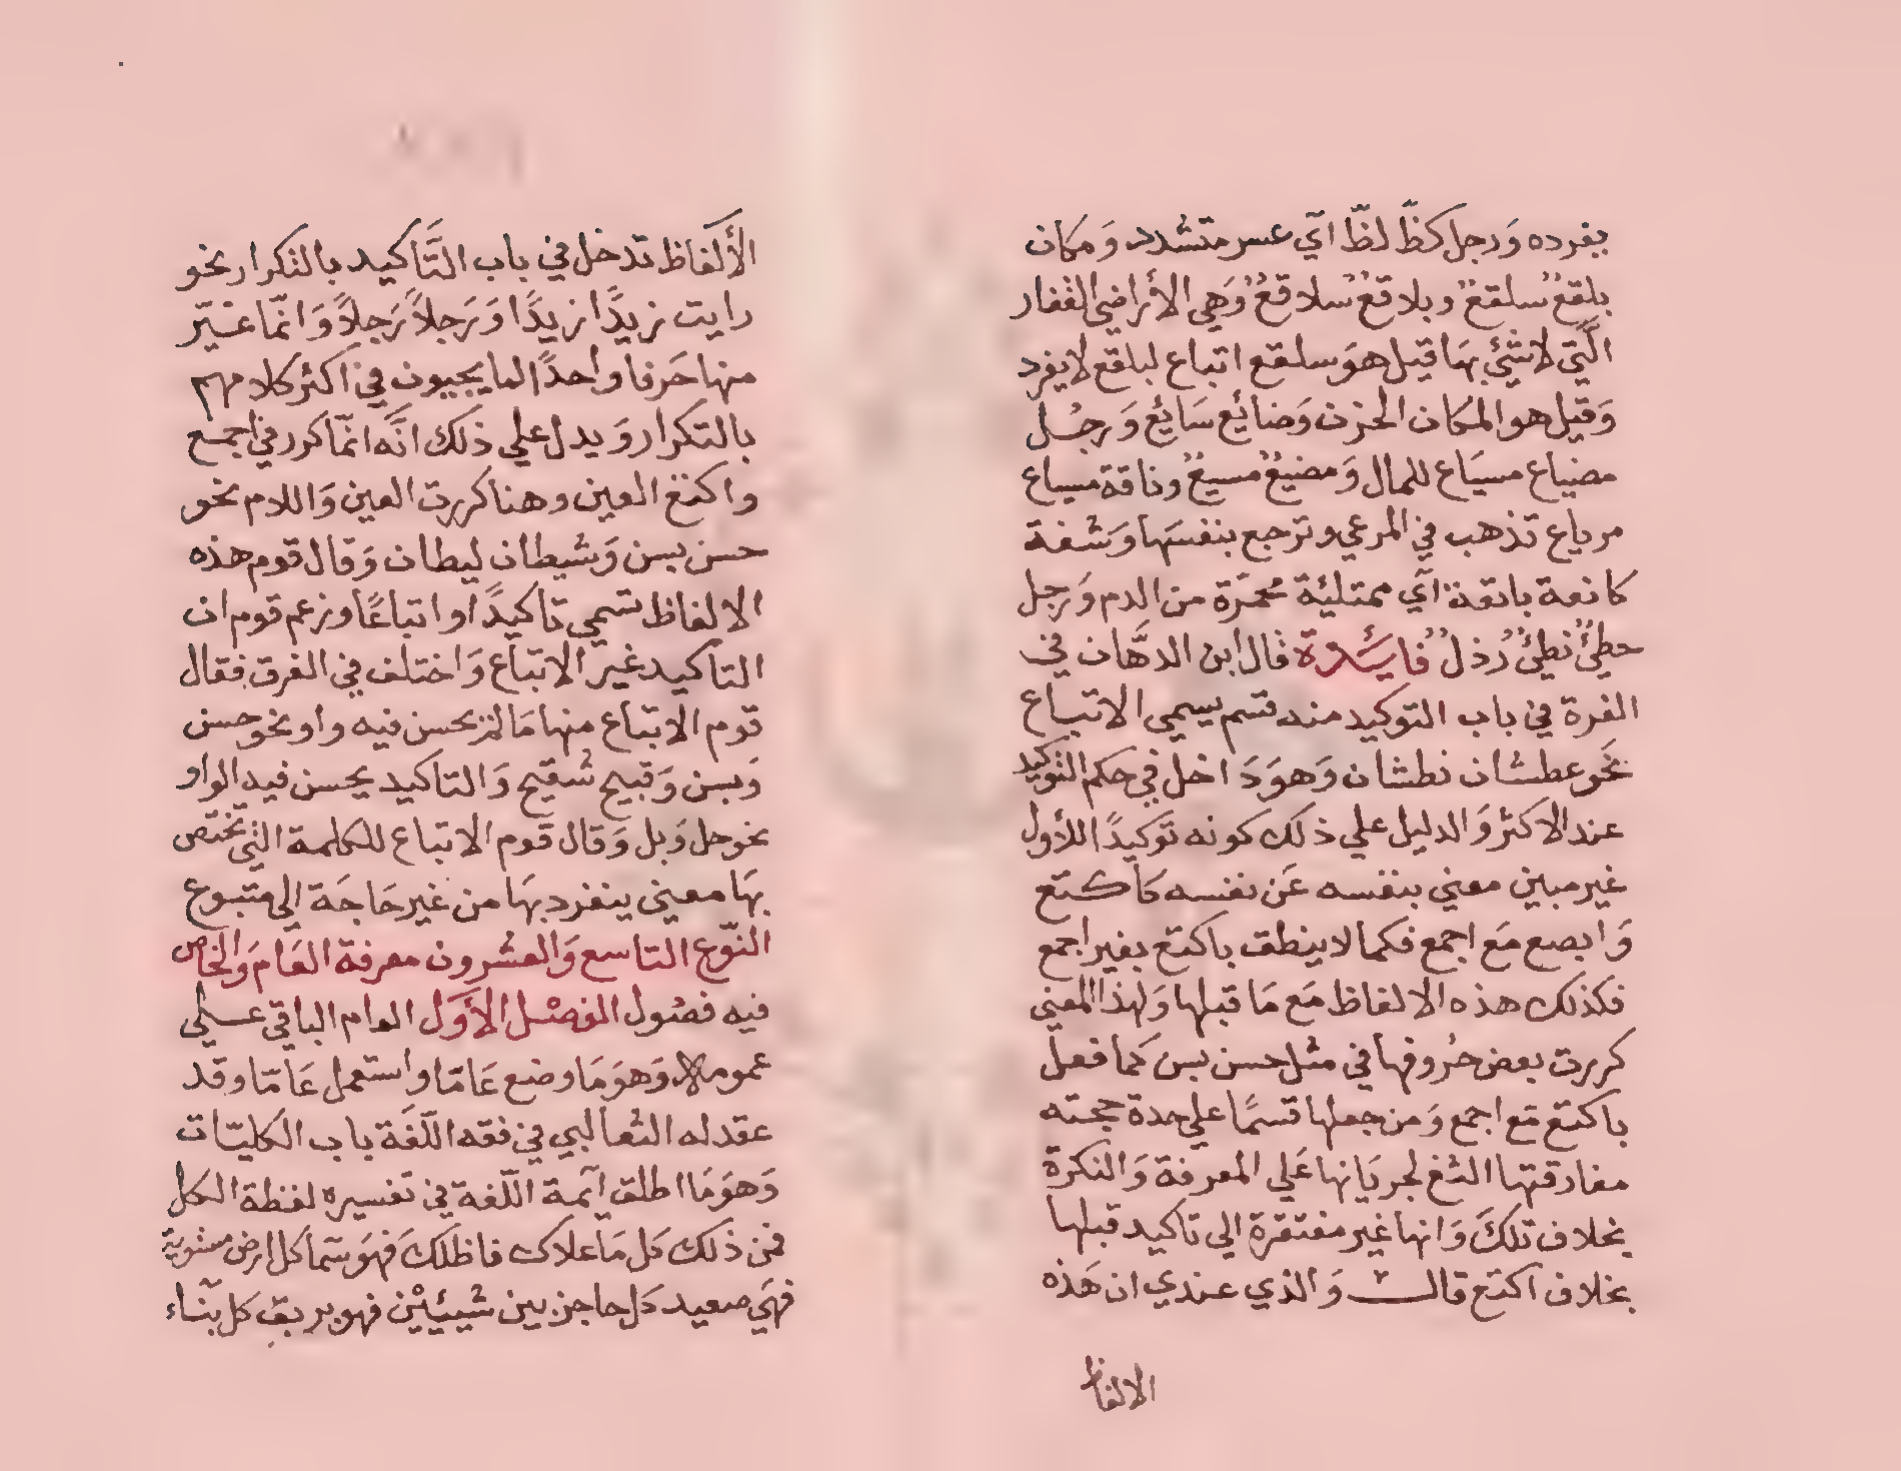 بفرده وَرجل كظّ لظّ اي عسر متشدد وَمكان
بلقعٌ سلقعٌ وبلاقعُ سلاقعُ وَهي الأراضي القفار
الَّتي لا شئ بهَا قيل هوَ سلقع اتباع لبلقع لا يفرد
وَقيل هو المكان الحزن وَضائع سَائع وَرجُل
مضياع مسيَاع للمال وَمضيعٌ مسيعٌ وناقة مسياع
مرياع تذهب في المرعي وترجع بنفسَها وَشفة
كاثعة باثعة اي ممتلئة محمّرة من الدم وَرجل
حطئٌ نطئٌ رُذل فايدة قال ابن الدهَّان في
الغرة في باب التوكيد منه قسم يسمي الاتباع
نحَو عطشان نطشان وَهوَ دَاخل في حكم التوكيد
عند الاكثر وَالدليل علي ذلك كونه توَكيدًا للأول
غير مبين معني بنفسه عَن نفسه كَاكتع
وَابصع مَع اجمع فكما لا ينطق باكتع بغير اجمع
فكذلك هذه الالفاظ مَع مَا قبلها وَلهذا المعني
كررت بعض حُروفها في مثل حسن بسن كمَا فعل
باكتع مَع اجمع وَمن جعلها قسمًا علي حدة حجته
مفارقتها اكتع لجريَانها عَلي المعرفة وَالنكرة
بخلاف تلكَ وَانها غير مفتقرة الي تاكيد قبلها
بخلاف اكتع قالـــت وَالذي عندي ان هَذه
الالفاظ
الألفَاظ تدخل في باب التَّاكيد بالتكرار نحو
رايت زيدًا زيدًا وَرَجلاً رَجلاً وَانّما غيّر
منها حَرفا واحدًا لما يجيون في اكثر كلامهم
بالتكرار وَيدل علي ذلك انَّه انّما كرر في اجمع
واكتع العين وهنا كررت العين وَاللام نحو
حسن بسن وَشيطان ليطان وَقال قوم هذه
الالفاظ تسمي تاكيدًا واتباعًا وزعم قوم ان
التاكيد غير الاتباع وَاختلف في الفرق فقال
قوم الاتباع منها مَا لم يحسن فيه واو نحو حسن
وَبسن وَقبيح شقيح وَالتاكيد يحسن فيه الواو
نحو حل وَبل وَقال قوم الاتباع للكلمة التي تختص
بهَا معني ينفرد بهَا من غير حَاجَة الي متبوع
النّوع التاسع وَالعشرون معرفة العَام وَالخاص
فيه فصُول الفصْل الأوَل العام الباقي عـــلي
عمومه وَهوَ مَا وضع عَامّا واستعمل عَامّا وقد
عقد له الثعالبي في فقه اللّغَة باب الكليّات
وَهوَ مَا اطلق ايمة اللّغة في تفسيره لفظة الكل
فمن ذلك كَل مَا علاك فاظلكَ فهوَ سَما كل ارض مستوية
فهيَ صعيد كَل حاجز بين شيئيْن فهو بريق كَل بنَاء